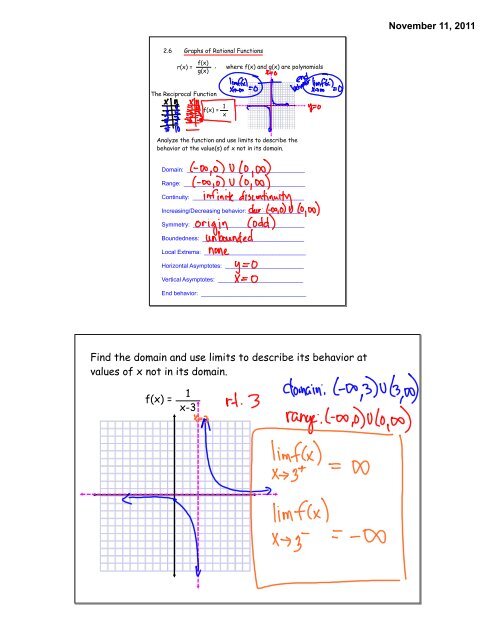 November 11, 2011
2.6 Graphs of Rational Functions
r(x) = f(x)/g(x) , where f(x) and g(x) are polynomials
x=0
lim f(x) = 0
x→∞
end
The Reciprocal Function
f(x) = 1/x
y=0
Analyze the function and use limits to describe the
behavior at the value(s) of x not in its domain.
Domain: (-∞,0) U (0,∞)
Range: (-∞,0) U (0,∞)
Continuity: infinite discontinuity
Increasing/Decreasing behavior: dec (-∞,0) U (0,∞)
Symmetry: origin (odd)
Boundedness: unbounded
Local Extrema: none
Horizontal Asymptotes: y=0
Vertical Asymptotes: x=0
End behavior:
Find the domain and use limits to describe its behavior at
values of x not in its domain.
f(x) = 1/x-3
rt. 3
domain: (-∞,3)U(3,∞)
range: (-∞,0)U(0,∞)
lim f(x) = ∞
x→3⁺
lim f(x) = -∞
x→3⁻